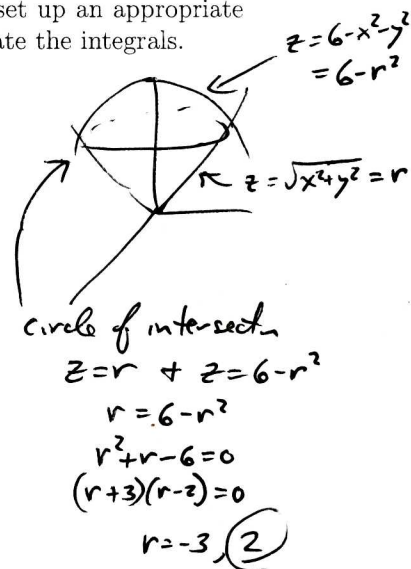 set up an appropriate
ate the integrals.
z=6-x²-y²
=6-r²
z=√x²+y² = r
circle of intersectn
z=r + z=6-r²
r=6-r²
r²+r-6=0
(r+3)(r-2)=0
r=-3, 2